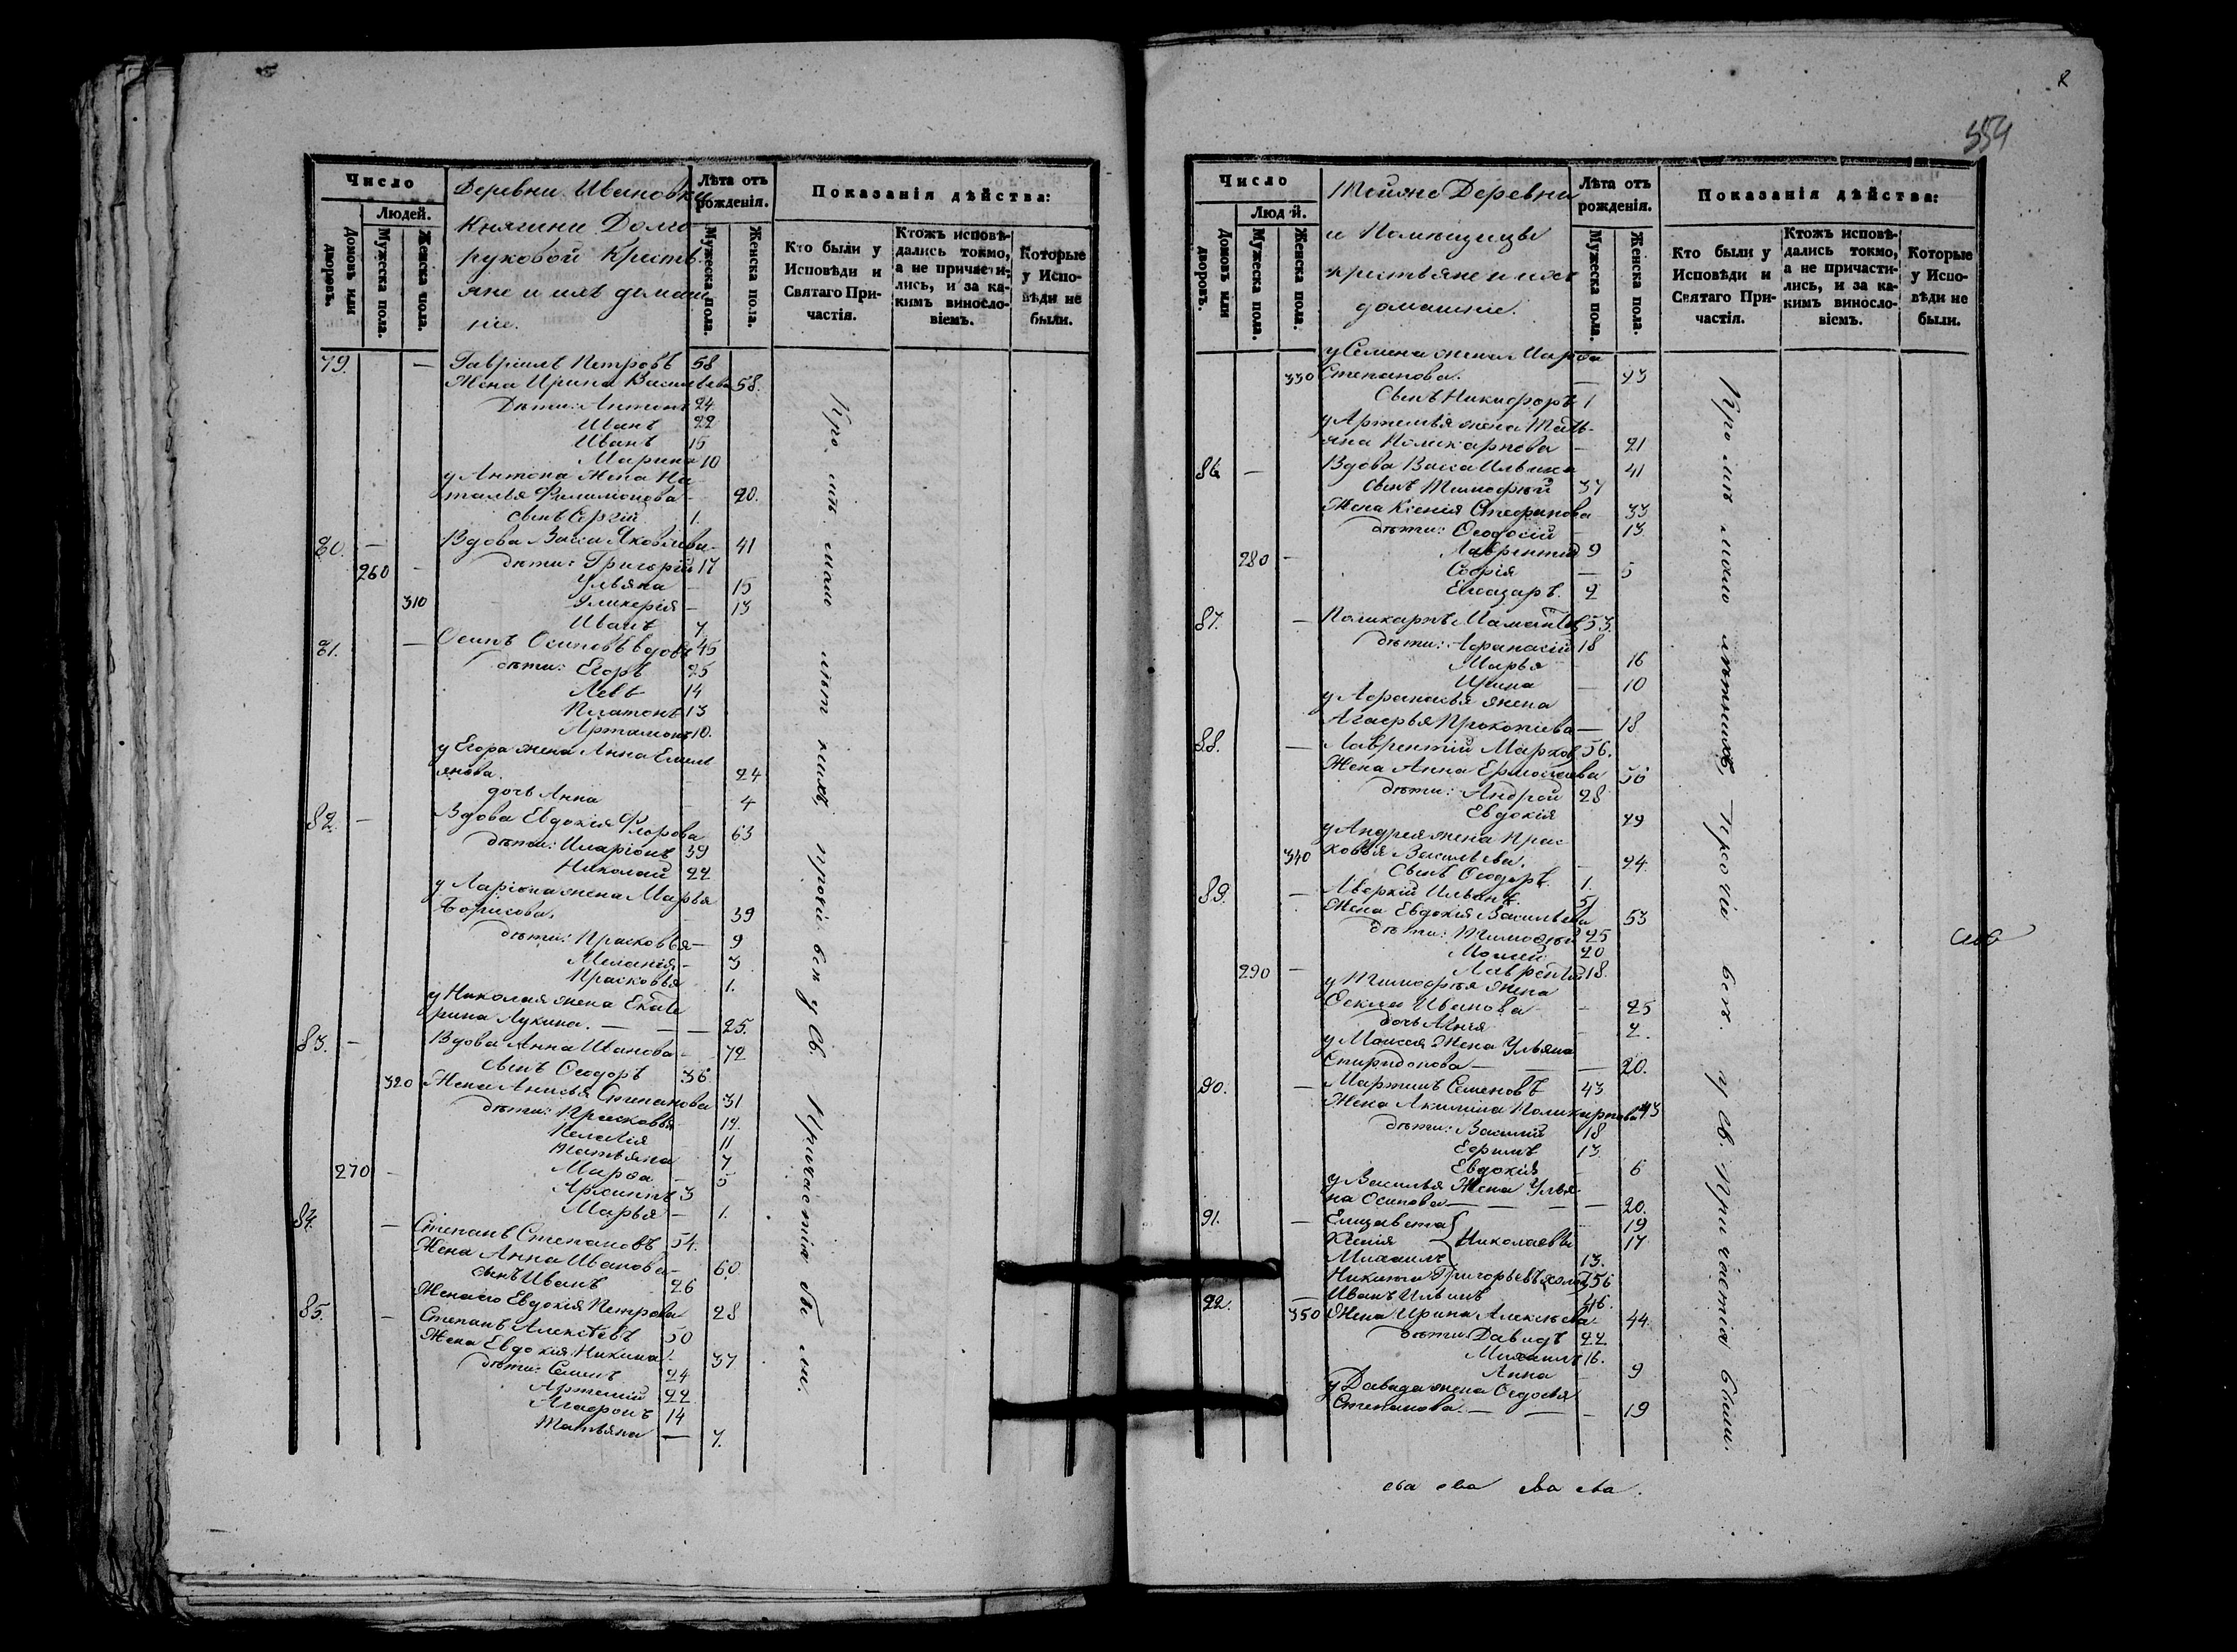 Число
Людей.
Домовъ или дворовъ.
Мужеска пола.
Женска пола.
Деревни Ивановки
Княгини Долго
руковой Кресть
яне и ихъ домаш
ніе.
Лѣта отъ рожденія.
Мужеска пола.
Женска пола.
Показанія дѣйства:
Кто были у Исповѣди и Святаго Причастія.
Ктожъ исповѣдались токмо, а не причастились, и за какимъ винословіемъ.
Которые у Исповѣди не были.
79. — Гавріилъ Петровъ 58
Жена Ирина Васильева 58.
Дѣти: Антонъ 24
Иванъ 22
Иванъ 15
Марина 10
у Антона жена На
талья Филимонова - 20.
сынъ Сергій 1.
80. — Вдова Васса Яковлева - 41
260 - дѣти: Григорій 17
Ульяна - 15
310 Гликерія - 13
Иванъ 7
81. — Осипъ Осиповъ вдовъ 45
дѣти: Егоръ 25
Левъ 14
Платонъ 13
Артамонъ 10.
у Егора жена Анна Емель
янова. 24
дочь Анна - 4
82. — Вдова Евдокія Флорова 63
дѣти: Иларіонъ 39
Николай 22
у Ларіона жена Марья
Борисова. - 39
дѣти: Прасковья - 9
Меланія - 3
Прасковья 1.
у Николая жена Екате
рина Лукина. — — — 25.
83. — Вдова Анна Иванова - 72
сынъ Ѳеодоръ 36
320 Жена Анисья Степанова 31
дѣти: Прасковья 14.
Пелагія 11
Татьяна 7
270 - Марѳа - 5
3
Марья - 1.
84. — Степанъ Степановъ 54.
Жена Анна Иванова - 60.
сынъ Иванъ 26
Жена его Евдокія Петрова 28
85. — Степанъ Алексѣевъ 50
Жена Евдокія Никина 37
дѣти: Семенъ 24
Артемій 22
Агаѳонъ 14
Татьяна — 7.
Кромѣ малолѣтнихъ прочіи вси у Св. Причастія были.
2
554
Число
Людей.
Домовъ или дворовъ.
Мужеска пола.
Женска пола.
Тойже Деревни
и Помѣщицы
крестьяне и ихъ
домашніе.
Лѣта отъ рожденія.
Мужеска пола.
Женска пола.
Показанія дѣйства:
Кто были у Исповѣди и Святаго Причастія.
Ктожъ исповѣдались токмо, а не причастились, и за какимъ винословіемъ.
Которые у Исповѣди не были.
у Семена жена Марѳа
330 Степанова. — 23
Сынъ Никифоръ 1
у Артемья жена Тать-
яна Поликарпова - 21
86 — Вдова Васса Ильина 41
сынъ Тимоѳей 37
Жена Ксенія Стефанова 33
дѣти: Ѳеодосій - 13
280 - Лаврентій 9
Софія — 5
Елеазаръ. 2
87. — Поликарпъ 53.
дѣти: Аѳанасій 18
Марья - 16
Ирина — 10
у Аѳанасья жена
Агаѳья Прокопіева — 18
88. — Лаврентій Марков 56.
Жена Анна Ермолаева 56
дѣти: Андрей 28
Евдокія 29
у Андрея жена Прас
340 ковья Васильева. - 24.
Сынъ Ѳеодоръ. 1.
89. — Аверкій 51
Жена Евдокія Васильева 53
дѣти: Тимоѳей 25
Моисей 20
290 — Лаврентій 18.
у Тимоѳея жена
Ѳекла Иванова - 25
дочь - 2.
у Моисея жена Ульяна
Спиридонова — — 20.
90. — Мартинъ Семеновъ 43
Жена Акилина Поликарпова 43
дѣти: Василій 18
Ефимъ 13
Евдокія - 6
у Василья Жена Улья
на Осипова — — — 20.
91. — Елизавета - 19
Ксенія Николаевы 17
Михаилъ 13.
Никита Григорьевъ холост 56
92. — Иванъ Ильинъ 46.
350 Жена Ирина Алексѣева 44.
дѣти: Давидъ 22
Михаилъ 16.
Анна - 9
у Давида жена Ѳедосья
Степанова. — — - 19
Кромѣ малолѣтнихъ, прочіе всѣ у Св. Причастія были.
ева ева ева ева.